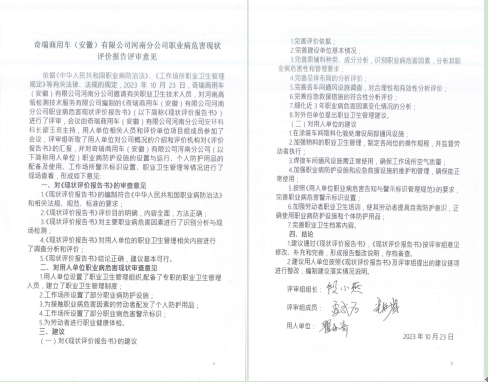 奇瑞商用车（安徽）有限公司河南分公司职业病危害现状
评价报告评审意见
依据《中华人民共和国职业病防治法》、《工作场所职业卫生管理
规定》等有关法律、法规的规定，2023 年 10 月 23 日，奇瑞商用车
（安徽）有限公司河南分公司邀请有关职业卫生技术人员，对河南高
航检测技术服务有限公司编制的《奇瑞商用车（安徽）有限公司河南
分公司职业病危害现状评价报告书》（以下简称《现状评价报告书》）
进行了评审，会议由奇瑞商用车（安徽）有限公司河南分公司安环科
科长翟玉奇主持，用人单位相关人员和评价单位项目组成员参加了
会议，评审组听取了用人单位对公司概况的介绍和评价机构对《评价
报告书》的汇报，并对奇瑞商用车（安徽）有限公司河南分公司（以
下简称用人单位）职业病防护设施的设置与运行、个人防护用品的
配备及使用、工作场所警示标识设置、职业卫生管理等情况进行了
现场查看，形成如下意见：
一、对《现状评价报告书》的审查意见
1.《现状评价报告书》的编制符合《中华人民共和国职业病防治法》
和相关法规、规范、标准的要求；
2.《现状评价报告书》评价目的明确，内容全面，方法正确；
3.《现状评价报告书》对主要职业病危害因素进行了识别分析与现
场检测；
4.《现状评价报告书》对用人单位的职业卫生管理相关内容进行
了调查分析和评价；
5.《现状评价报告书》结论正确，建议基本可行。
二、对用人单位职业病危害现状审查意见
1.用人单位设置了职业卫生管理组织，配备了专职的职业卫生管理
人员，建立了职业卫生管理制度；
2.工作场所设置了部分职业病防护设施；
3.为接触职业病危害因素的劳动者配发了个人防护用品；
4.工作场所设置了部分职业病危害警示标识；
5.为劳动者进行职业健康体检。
三、建议
（一）对《现状评价报告书》的建议
1
1.完善评价依据；
2.完善建设单位基本情况；
3.完善原辅料种类、成分分析，识别职业病危害因素，分析其职
业病危害性和管理要求；
4.完善总体布局的分析评价；
5.完善各车间通风设施调查，对合理性和有效性分析评价；
6.完善应急救援措施的符合性分析评价；
7.细化近 3 年职业病危害因素变化情况的分析；
8.对外包单位提出职业卫生管理建议。
（二）对用人单位的建议
1.在涂装车间喂料化验处增设局部通风设施；
2.加强物料的职业卫生管理，制定各岗位的操作规程，并监督劳
动者执行；
3.焊接车间通风设施需正常使用，确保工作场所空气质量；
4.加强职业病防护设施和应急救援设施的维护和管理，确保能正
常使用；
5.按照《用人单位职业病危害告知与警示标识管理规范》的要求，
完善职业病危害警示标识设置；
6.加强劳动者职业卫生培训，使其劳动者提高自我防护意识，正
确使用职业病防护设施和个体防护用品；
7.完善职业卫生档案内容。
四、结论
1.建议通过《现状评价报告书》，《现状评价报告书》按评审组意见
修改、补充和完善，形成报告整改说明，存档备查。
2.建议用人单位按照《现状评价报告书》及评审组提出的建议逐项
进行整改，编制建议落实情况说明。
评审组组长：
评审组成员：
用人单位：
2023 年 10 月 23 日
2